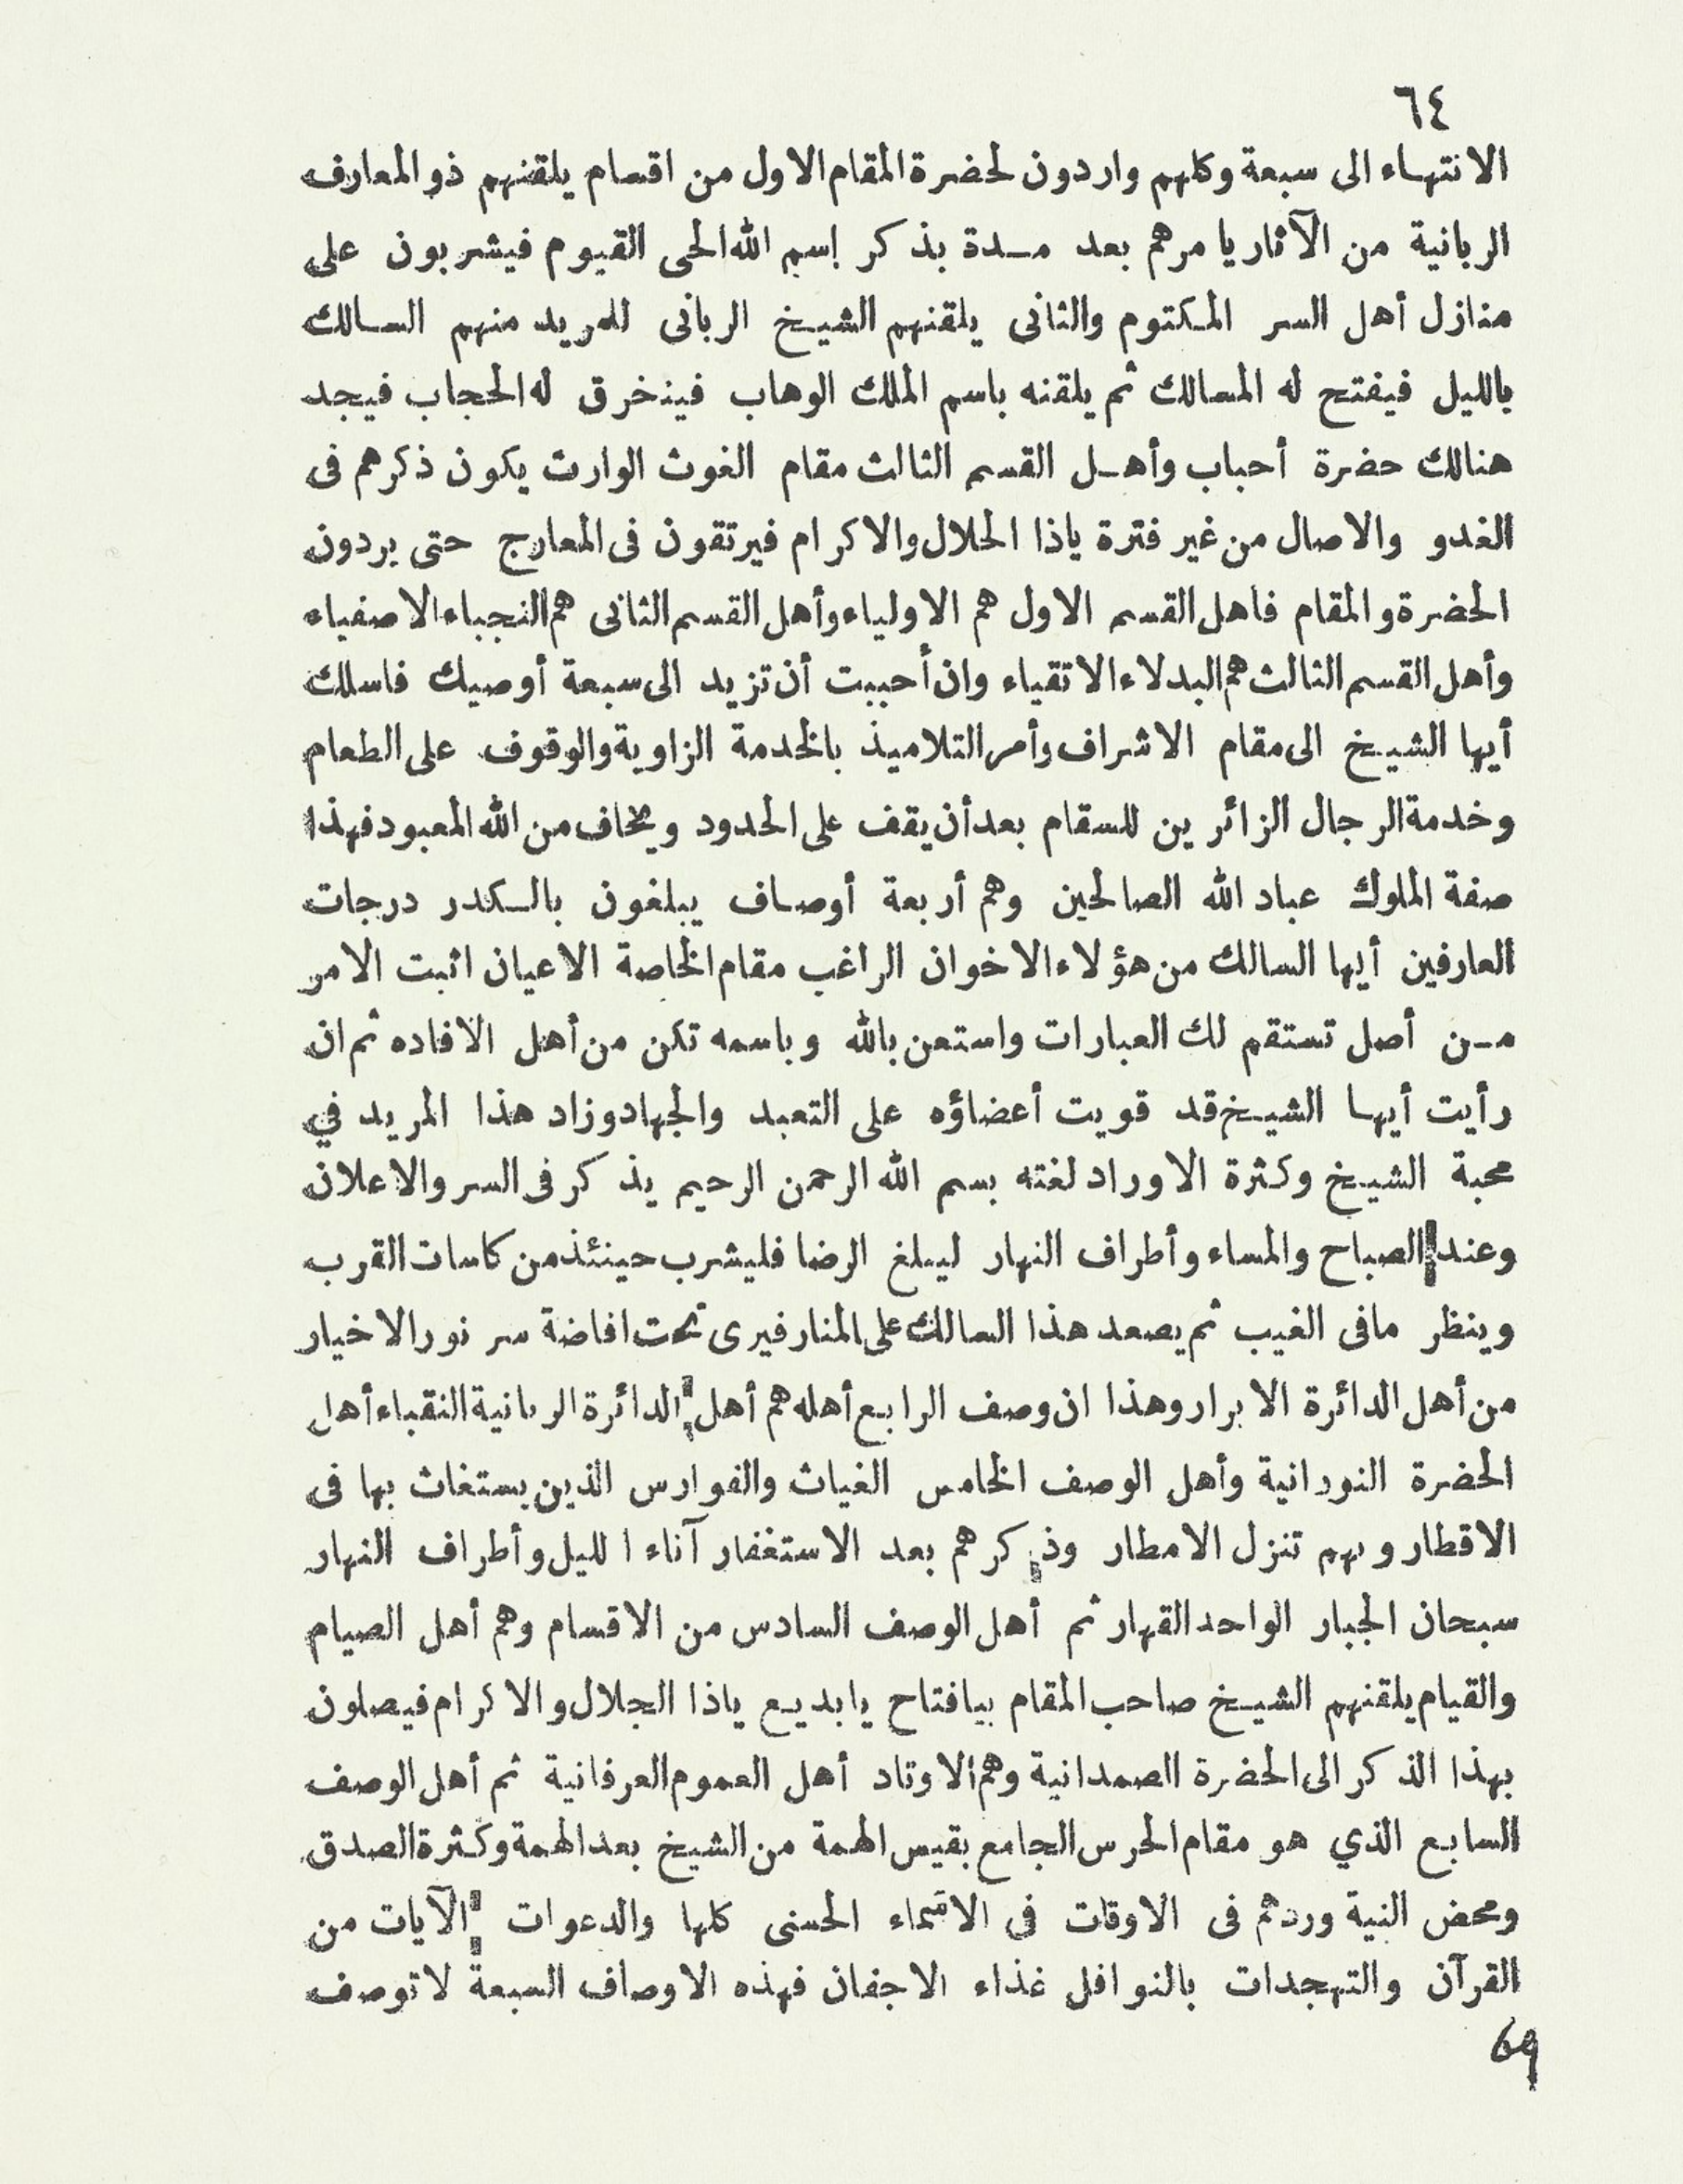 ٦٤
الانتهاء الى سبعة وكلهم واردون لحضرة المقام الاول من اقسام يلقنهم ذو المعارف
الربانية من الآثار يا مرهم بعد مدة بذكر إسم الله الحى القيوم فيشربون على
منازل أهل السر المكتوم والثانى يلقنهم الشيخ الربانى للمريد منهم السالك
بالليل فيفتح له المسالك ثم يلقنه باسم الملك الوهاب فينخرق له الحجاب فيجد
هنالك حضرة أحباب وأهل القسم الثالث مقام الغوث الوارث يكون ذكرهم فى
الغدو والاصال من غير فترة ياذا الحلال والاكرام فيرتقون فى المعارج حتى يردون
الحضرة والمقام فاهل القسم الاول هم الاولياء وأهل القسم الثانى هم النجباء الاصفياء
وأهل القسم الثالث هم البدلاء الاتقياء وان أحببت أن تزيد الى سبعة أوصيك فاسلك
أيها الشيخ الى مقام الاشراف وأمر التلاميذ بالخدمة الزاوية والوقوف على الطعام
وخدمة الرجال الزائرين للسقام بعد أن يقف على الحدود ويخاف من الله المعبود فهذا
صفة الملوك عباد الله الصالحين وهم أربعة أوصاف يبلغون بالكدر درجات
العارفين أيها السالك من هؤلاء الاخوان الراغب مقام الخاصة الاعيان اثبت الامر
من أصل تستقم لك العبارات واستعن بالله وباسمه تكن من أهل الافاده ثم ان
رأيت أيها الشيخ قد قويت أعضاؤه على التعبد والجهاد وزاد هذا المريد في
محبة الشيخ وكثرة الاوراد لغته بسم الله الرحمن الرحيم يذكر فى السر والاعلان
وعند الصباح والمساء وأطراف النهار ليبلغ الرضا فليشرب حينئذ من كاسات القرب
وينظر مافى الغيب ثم يصعد هذا السالك على المنار فيرى تحت افاضة سر نور الاخيار
من أهل الدائرة الابرار وهذا ان وصف الرابع أهله هم أهل الدائرة الربانية النقباء أهل
الحضرة النورانية وأهل الوصف الخامس الغياث والفوارس الذين يستغاث بها فى
الاقطار وبهم تنزل الامطار وذكرهم بعد الاستغفار آناء الليل وأطراف النهار
سبحان الجبار الواحد القهار ثم أهل الوصف السادس من الاقسام وهم أهل الصيام
والقيام يلقنهم الشيخ صاحب المقام بيافتاح يا بديع ياذا الجلال والاكرام فيصلون
بهذا الذكر الى الحضرة الصمدانية وهم الاوتاد أهل العموم العرفانية ثم أهل الوصف
السابع الذي هو مقام الحرس الجامع بقيس الهمة من الشيخ بعد الهمة وكثرة الصدق
ومحض النية وردهم فى الاوقات فى الاسماء الحسنى كلها والدعوات الآيات من
القرآن والتهجدات بالنوافل غذاء الاجفان فهذه الاوصاف السبعة لا توصف
69